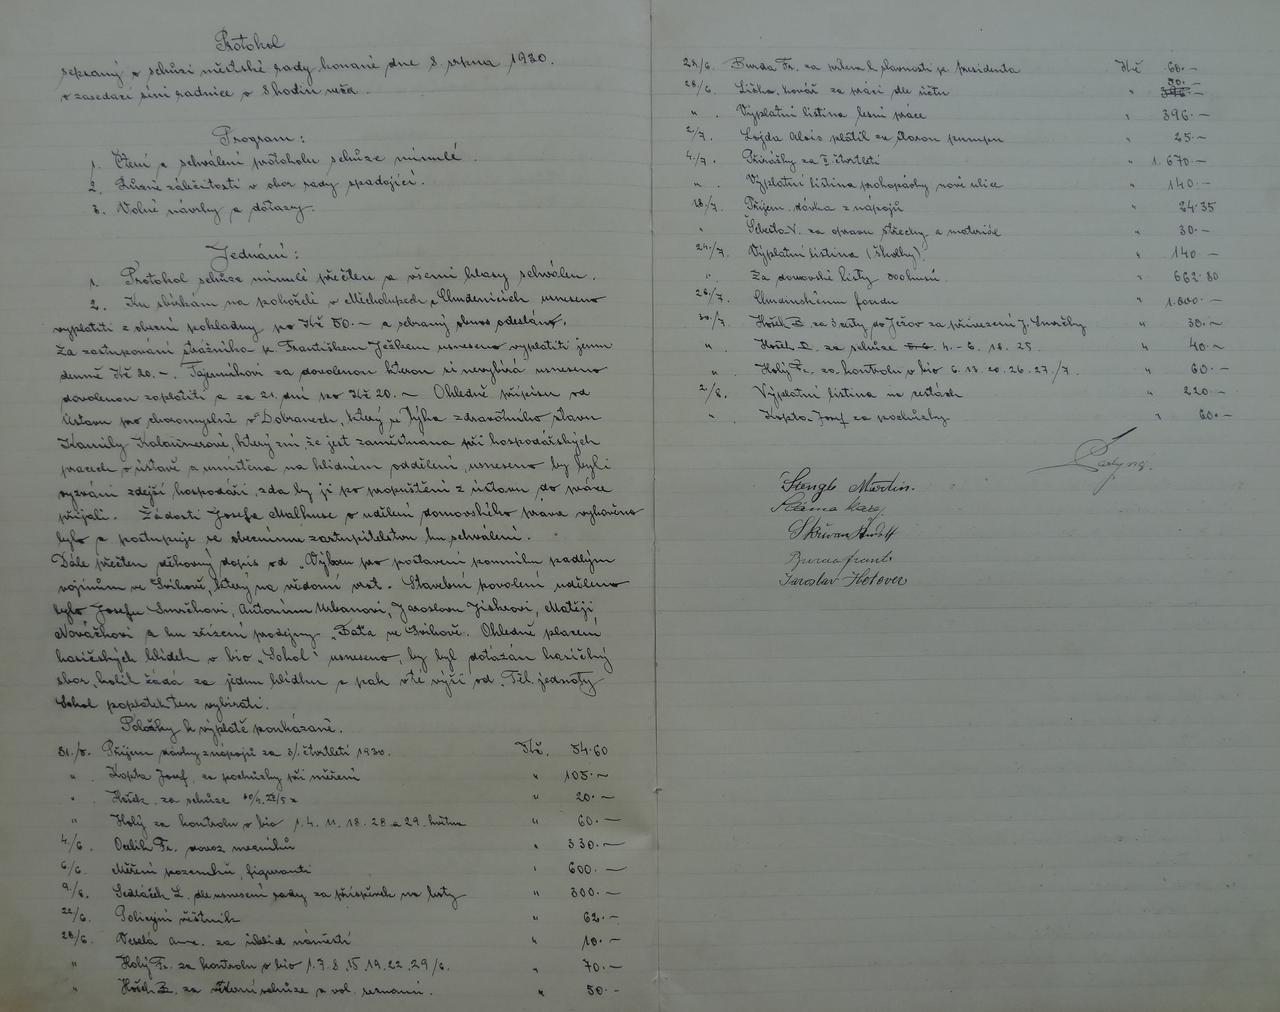 Protokol
sepsaný o schůzi městské rady konané dne 8. srpna 1930.
v zasedací síni radnice o 8 hodin več.
Program:
1. Čtení a schválení protokolu schůze minulé.
2. Různé záležitosti v obor rady spadající.
3. Volné návrhy a dotazy.
Jednání:
1. Protokol schůze minulé přečten a všemi hlasy schválen.
2. Ku sbírkám na pohořelé v Měcholupech a Chudenicích usneseno
vyplatiti z obecní pokladny po Kč 50.— a sebraný obnos odeslán.
Za zastupování strážníka p. Františkem Ježkem usneseno vyplatiti jemu
denně Kč 20.—. Tajemníkovi za dovolenou kterou si nevybírá usneseno
dovolenou zaplatiti a za 21. dní po Kč 20.— Ohledně přípisu od
ústavu pro choromyslné v Dobřanech, který se týká zdravotního stavu
Kamily, který zní, že jest zaměstnána při hospodářských
pracech v ústavě a umístěna na klidném oddělení, usneseno by byli
vyzváni zdejší hospodáři, zda by ji po propuštění z ústavu do práce
přijali. Žádosti Josefa Malkuse o udělení domovského práva vyhověno
bylo a postupuje se obecnímu zastupitelstvu ku schválení.
Dále přečten děkovný dopis od „Výboru pro postavení pomníku padlým
vojínům ve Švihově, který na vědomí vzat. Stavební povolení uděleno
bylo Josefu Smrčkovi, Antonínu Urbanovi, Jaroslavu Jiskrovi, Matěji
Nováčkovi a ku zřízení prodejny „Baťa ve Švihově. Ohledně placení
hasičských hlídek v bio „Sokol" usneseno, by byl dotázán hasičský
sbor, kolik žádá za jednu hlídku a pak v té výši od „Těl. jednoty
Sokol poplatek ten vybírati.
Položky k výplatě poukázané.
31./5. Příjem dávky z nápojů za čtvrtletí 1930. Kč. 54.60
" Kopta Josef, za pochůzky při měření " 105.—
" za schůze " 20.—
" Holý za kontrolu v bio 1. 4. 11. 18. 28 a 29. května " 60.—
4./6. Fr. dovoz " 330.—
6/6. Měření pozemků, figuranti " 600.—
9/6. Sedláček L. dle usnesení rady za příspěvek na " 300.—
22/6. Policejní věstník " 62.—
28/6. Veselá Anna. za úklid náměstí " 10.—
" Holý Fr. za kontrolu v bio 1. 7. 8. 15. 19. 22. 29/6. " 70.—
" za schůze a vol. seznamů. " 50.—
28/6. Burda Fr. za k slavnosti p. presidenta Kč 60.—
28/6. Lička, kovář za práci dle účtu " 50.—
" Výplatní listina lesní práce " 396.—
2/7. Lojda Alois platil za starou pumpu " 25.—
4./7. Přirážky za I. čtvrtletí " 1.670.—
" Výplatní listina prokopávky nové ulice " 140.—
18/7. Příjem. dávka z nápojů " 24.35
" V. za opravu střechy a materiál " 30.—
24./7. Výplatní listina (školky) " 140.—
" Za domovské listy " 662.80
26/7. Chudinskému fondu " 1.000.—
30./7. za do Ježov za přivezení J. Smrčky " 30.—
" za schůze 4. - 6. 18. 25. " 40.—
" Holý Fr. za kontrolu v bio 6. 13. 20. 26. 27./7. " 60.—
2/8. Výplatní listina na cestách " 220.—
" Kopta Josef za pochůzky " 60.—
Stengl Martin.
Skřivan Rudolf
Burda Frant.
Jaroslav